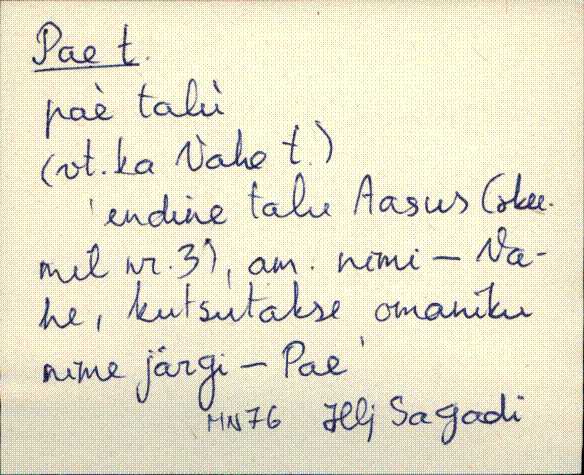 Pae t.
paè talù
(vt. ka Vahe t.)
'endine talu Aasus (skee-
mil nr. 3), am. nimi – Va-
he, kutsutakse omaniku
nime järgi – Pae'
MN76 Hlj Sagadi